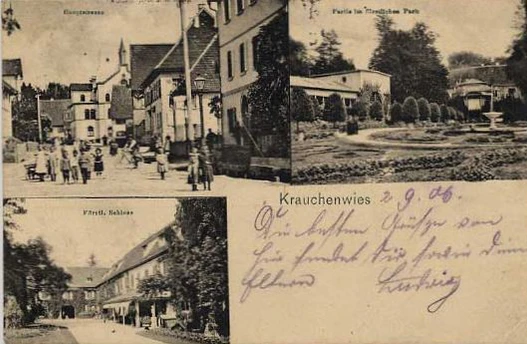 Hauptstrasse
Partie im Fürstlichen Park
Krauchenwies 2 9. 06.
Die besten Grüße von
hier sendet Dir, sowie Deinen
Eltern Ludwig
Fürstl. Schloss